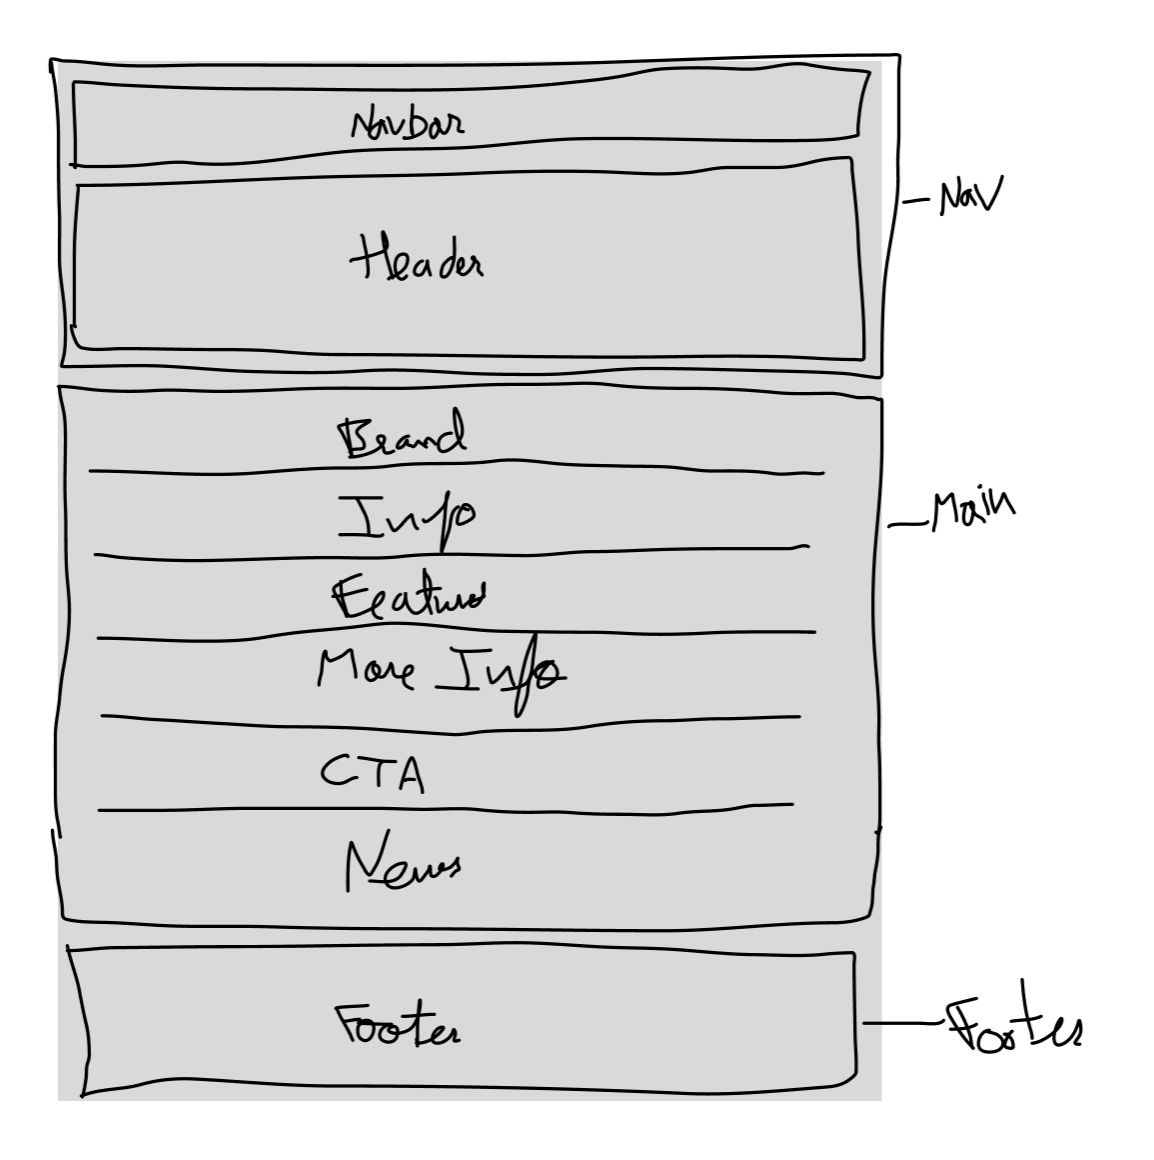 Navbar
Nav
Header
Brand
Info
Main
Features
More Info
CTA
News
Footer
Footer